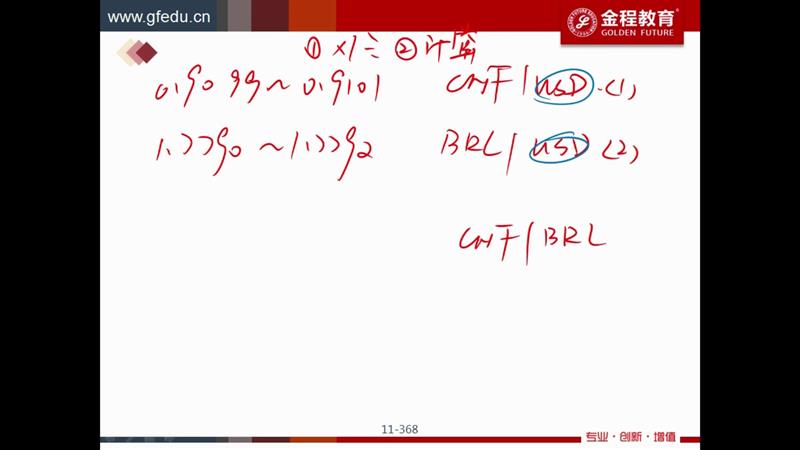 www.gfedu.cn
金程教育®
GOLDEN FUTURE
① ×/÷ ② 计算
0.9099~0.9101 CHF/USD (1)
1.7790~1.7792 BRL/USD (2)
CHF/BRL
11-368
专业·创新·增值